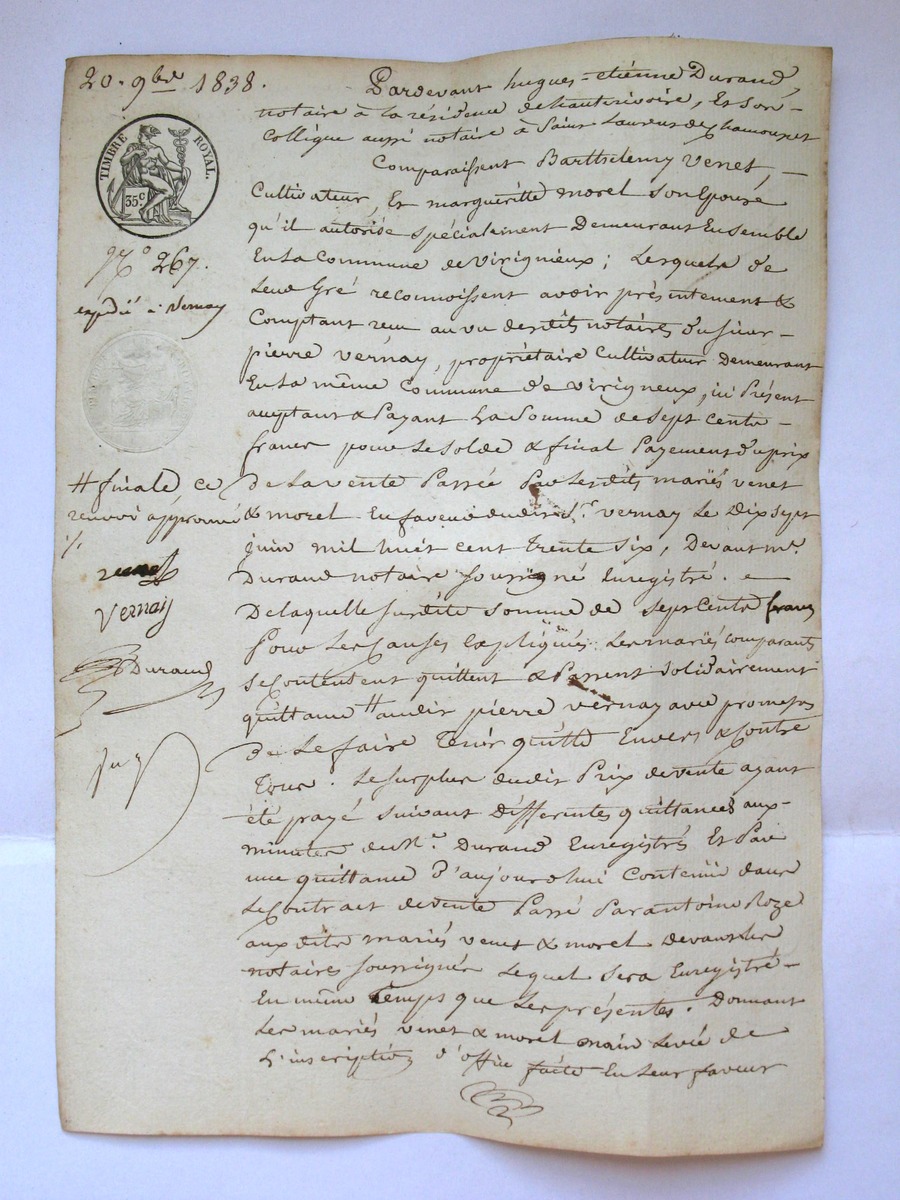 20. 9bre 1838.
TIMBRE ROYAL.
35 c.
No 267.
expédié à Vernay
# finale ce
renvoi approuvé
venet
Vernay
Durand
Pardevant hugues-etiénne Durand,
notaire à la résidence de hauterivoire, Et son-
Collégue aussi notaire à Saint Laurent de chamousset
Comparaissent Barthélemy Venet, -
Cultivateur, Et margueritte morel Son Epouse
qu'il autorise spécialement Demeurant Ensemble
En la Commune de Virignieux; Lesquels de
leur Gré reconnoissent avoir présentement &
Comptant reçu au vu desdits notaires du sieur-
pierre Vernay, propriétaire Cultivateur Demeurant
En la même Commune de Virigneux, ici Présent
acceptant & Payant La Somme de Sept Cents-
francs pour le Solde & final Payement du prix
De La Vente Passée Par Lesdits mariés venet
& morel En faveur dudit Sr. Vernay Le Dix Sept
juin mil huit cent trente Six, Devant me.
Durand notaire Soussigné Enregistré.
De laquelle susdite Somme de Sept Cents francs
Pour Les Causes Expliquées Les mariés comparants
Se Contentent quittent & Passent Solidairement
quittance # audit pierre Vernay avec promesse
De Le faire Tenir quitte Envers & Contre
Tous. Le Surplus dudit Prix de vente ayant
été payé Suivant Différentes quittances aux-
minutes du Me. Durand Enregistrés Et Par
une quittance D'aujourdhui Contenüe dans
Le Contract de vente Passé Par antoine Roze
aux dits mariés venet & morel Devant Les
notaires Soussignés Lequel Sera Enregistré-
En même Temps que Les présentes. Donnant
Les mariés venet & morel main Levée de
L'inscription d'office faite En Leur faveur